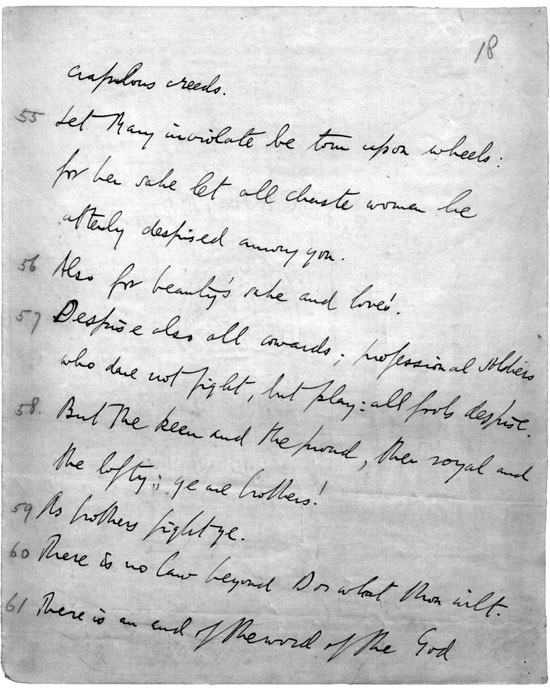 18
crapulous creeds.
55 Let Mary inviolate be torn upon wheels:
for her sake let all chaste women be
utterly despised among you.
56 Also for beauty's sake and love's.
57 Despise also all cowards; professional soldiers
who dare not fight, but play: all fools despise.
58. But the keen and the proud, the royal and
the lofty; ye are brothers!
59 As brothers fight ye.
60 There is no law beyond Do what thou wilt.
61 There is an end of the word of the God